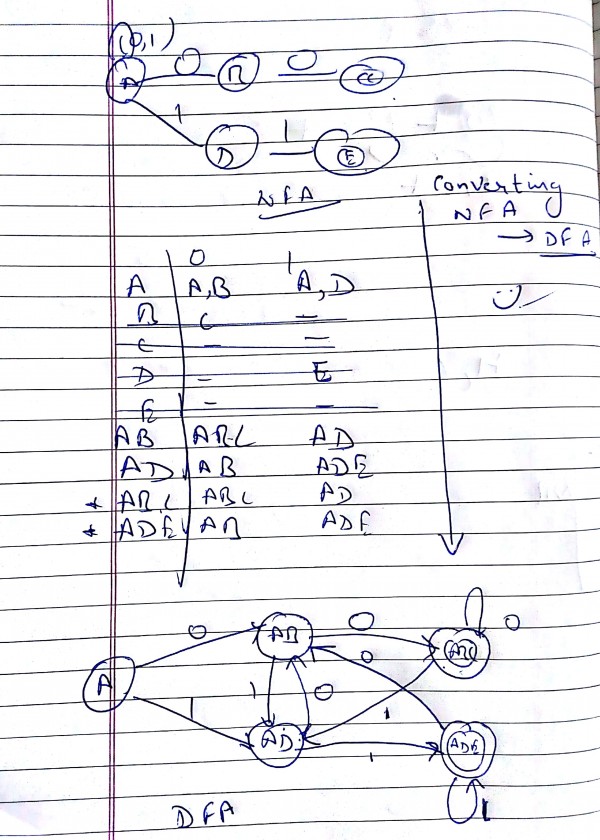 (0,1)
A 0 B 0 C
1
D 1 E
NFA
Converting
NFA
→ DFA
0 1
A A,B A,D
B C –
C – –
D – E
E – –
AB ABC AD
AD AB ADE
* ABC ABC AD
* ADE AB ADE
0 AB 0 ABC 0
0
A 1 0
1 1
AD 1 ADE
1
DFA